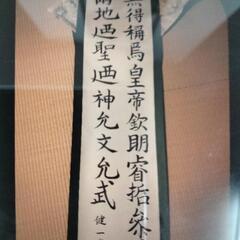 無得稱焉皇帝欽明睿哲
地迺聖迺神允文允武
健一